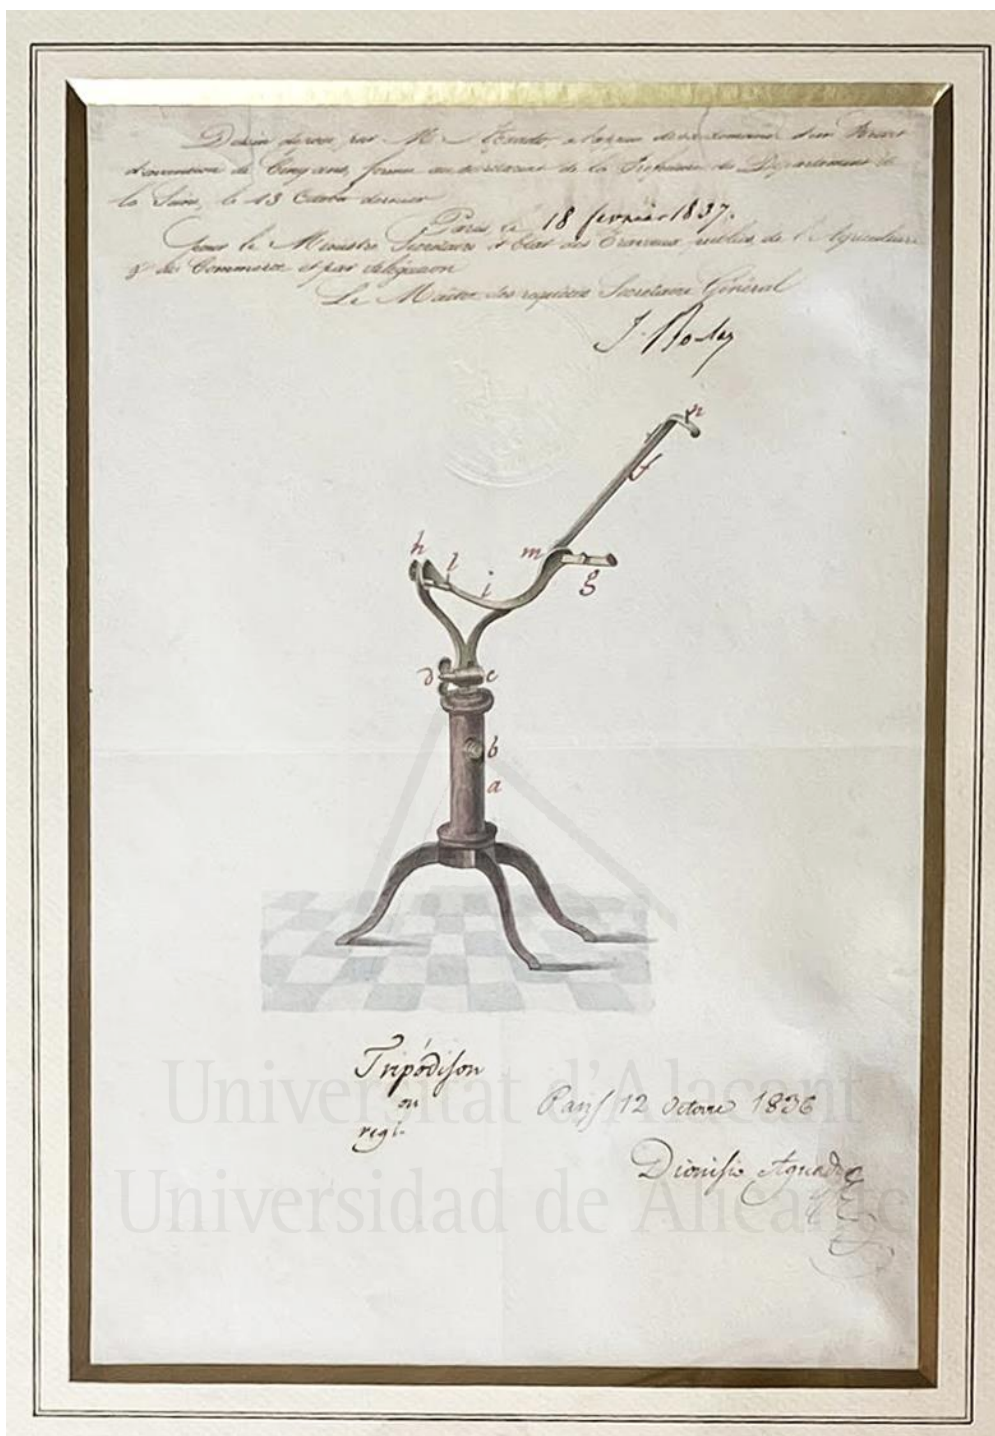 Dessin déposé par M. Aguado, à l'appui de sa demande d'un Brevet
d'invention de Cinq ans, formée au secrétariat de la Préfecture du Département de
la Seine, le 13 Octobre dernier
Paris, le 18 fevrier 1837.
Pour le Ministre Secrétaire d'Etat des Travaux publics, de l'Agriculture
& du Commerce et par délégation
Le Maître des requêtes Secrétaire Général
n
f
h
l
m
i
g
d
c
b
a
Tripódison
ou
Universitat d'Alacant
Paris 12 Octobre 1836
Dionisio Aguado
Universidad de Alicante